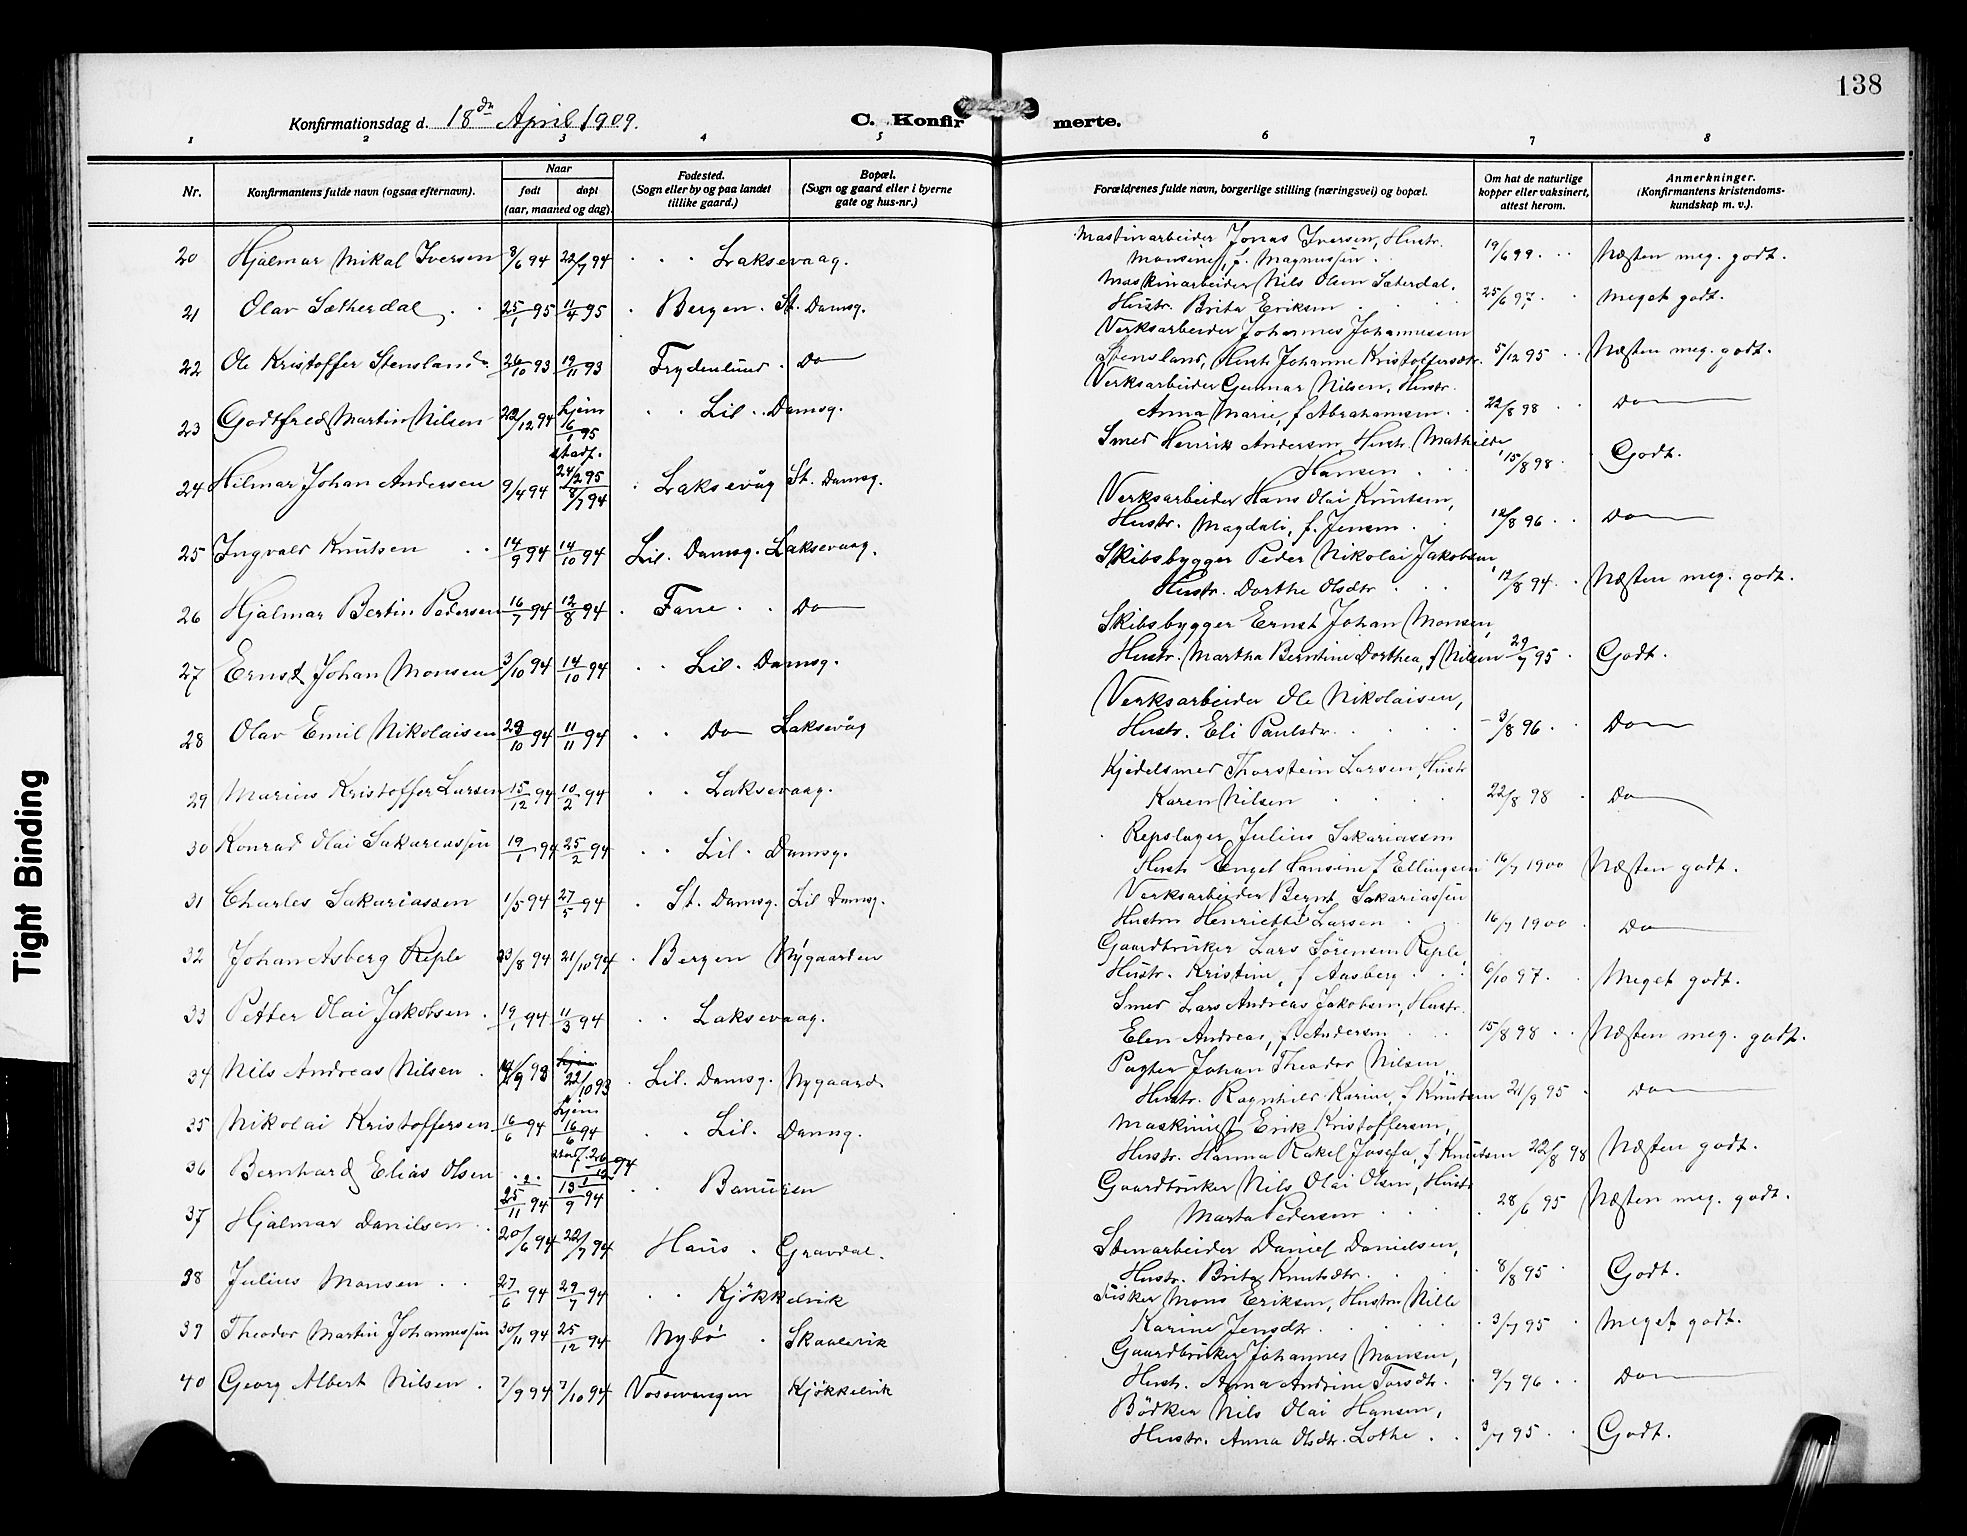 138
Konfirmationsdag d. 18de April 1909.
C. Konfirmerte.
1 2 3 4 5 6 7 8
Nr.
Konfirmantens fulde navn (ogsaa efternavn).
Naar
født
døpt
(aar, maaned og dag).
Fødested.
(Sogn eller by og paa landet
tillike gaard.)
Bopæl.
(Sogn og gaard eller i byerne
gate og hus-nr.)
Forældrenes fulde navn, borgerlige stilling (næringsvei) og bopæl.
Om hat de naturlige
kopper eller vaksinert,
attest herom.
Anmerkninger.
(Konfirmantens kristendoms-
kundskap m. v.).
20 Hjalmar Mikal Iversen 8/6 94 22/7 94 Laksevaag.
Maskinarbeider Jonas Iversen, Hustr.
Monsine, f. Magnussen 19/6 99 Næsten meg. godt.
21 Olav Sætherdal 25/1 95 11/4 95 Bergen. St. Damsg.
Maskinarbeider Nils Olsen Sæterdal,
Hustr. Brita Eriksen 25/6 97 Meget godt.
22 Ole Kristoffer Stensland 26/10 93 19/11 93 Frydenlund Do
Verksarbeider Johannes Johannessen
Stensland, Hustr. Johanne Kristoffersdtr. 5/12 95 Næsten meg. godt.
23 Godtfred Martin Nilsen 22/12 94 hjem 16/1 95 stadf. 24/2 95 Lil. Damsg.
Verksarbeider Gunnar Nilsen, Hustr.
Anna Marie, f. Abrahamsen 22/8 98 Do
24 Hilmar Johan Andersen 9/4 94 8/7 94 Laksevåg St. Damsg.
Smed Henrik Andersen, Hustr. Mathilde
Hansen 15/8 98 Godt.
25 Ingvald Knutsen 14/9 94 14/10 94 Lil. Damsg. Laksevaag.
Verksarbeider Hans Olai Knutsen,
Hustr. Magdali, f. Jensen 12/8 96 Do
26 Hjalmar Bertin Pedersen 16/7 94 12/8 94 Fane Do
Skibsbygger Peder Nikolai Jakobsen,
Hustr. Dorthe Olsdtr 12/8 94 Næsten meg. godt.
27 Ernst Johan Monsen 3/10 94 14/10 94 Lil. Damsg.
Skibsbygger Ernst Johan Monsen,
Hustr. Martha Berntine Dorthea, f Nilsen 29/7 95 Godt.
28 Olav Emil Nikolaisen 29/10 94 11/11 94 Do Laksevåg
Verksarbeider Ole Nikolaisen,
Hustr. Eli Paulsdtr. 3/8 96 Do
29 Marius Kristoffer Larsen 15/12 94 10/2 94 Laksevaag.
Kjedelsmed Thorstein Larsen, Hustr
Karen Nilsen 22/8 98 Do
30 Konrad Olai Sakariassen 19/1 94 25/2 94 Lil. Damsg.
Repslager Julius Sakariassen
Hustr Engel Hansine f Ellingsen 16/7 1900 Næsten godt.
31 Charles Sakariassen 1/5 94 27/5 94 St. Damsg. Lil Damsg.
Verksarbeider Bernt Sakariassen
Hustru Henriette Larsen 16/7 1900 Do
32 Johan Asberg Reple 23/8 94 21/10 94 Bergen Nygaarden
Gaardbruker Lars Sörensen Reple,
Hustr. Kristine, f Aasberg 6/10 97 Meget godt.
33 Petter Olai Jakobsen 19/1 94 11/3 94 Laksevaag.
Smed Lars Andreas Jakobsen, Hustr.
Elen Andrea, f. Andersen 15/8 98 Næsten meg. godt.
34 Nils Andreas Nilsen 14/9 93 hjem 22/10 93 Lil. Damsg. Nygaard
Pagter Johan Theodor Nilsen,
Hustr. Ragnhild Karine, f Knutsen 21/9 95 Do
35 Nikolai Kristoffersen 16/6 94 hjem 16/6 94 stadf. 26/12 94 Lil. Damsg.
Maskinist Erik Kristoffersen,
Hustr. Hanna Rakel Josefa, f Knutsen 22/8 98 Næsten godt.
36 Bernhard Elias Olsen 25/11 94 Banuren
Gaardbruker Nils Olai Olsen, Hustr
Marta Pedersen 28/6 95 Næsten meg. godt.
37 Hjalmar Danilsen 20/6 94 22/7 94 Haus Gravdal.
Stenarbeider Daniel Danielsen,
Hustr. Brita Knutsdtr. 8/8 95 Godt.
38 Julius Monsen 27/6 94 29/7 94 Kjökkelvik
Fisker Mons Eriksen, Hustru Nille
Karine Jensdtr 3/7 95 Meget godt.
39 Theodor Martin Johannessen 30/11 94 25/12 94 Nybö Skaalevik
Gaardbruker Johannes Monsen,
Hustr. Anna Andrine Tarsdtr. 9/7 96 Do
40 Georg Albert Nilsen 7/9 94 7/10 94 Vossevangen Kjökkelvik
Bödker Nils Olai Hansen,
Hustr. Anna Olsdtr. Lothe 3/7 95 Godt.
Tight Binding